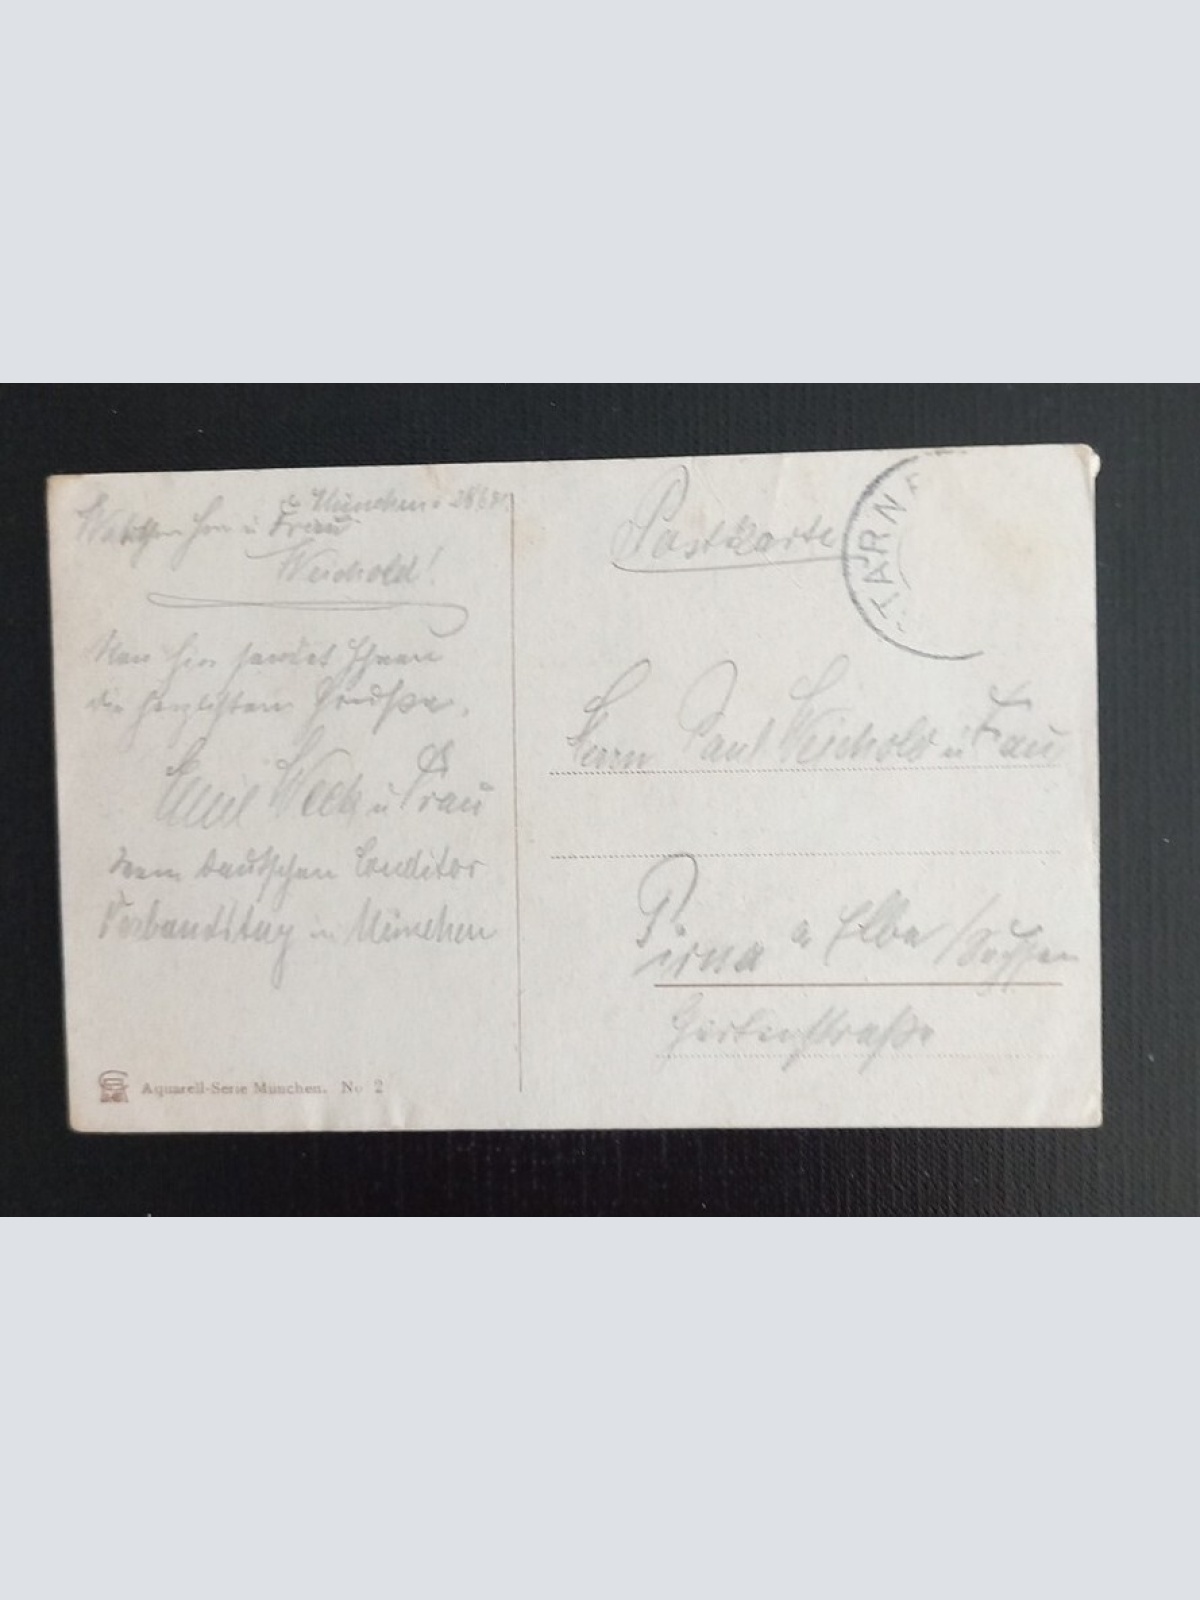 München
Frau
Weichold!
Von hier sendet Ihnen
die herzlichsten Grüße.
Emil Weck u Frau
vom deutschen Conditor
Verbandstag in München
Aquarell-Serie München. No 2
Postkarte
STARN
Herrn Paul Weichold u Frau
Pirna a Elbe / Sachsen
Gartenstraße